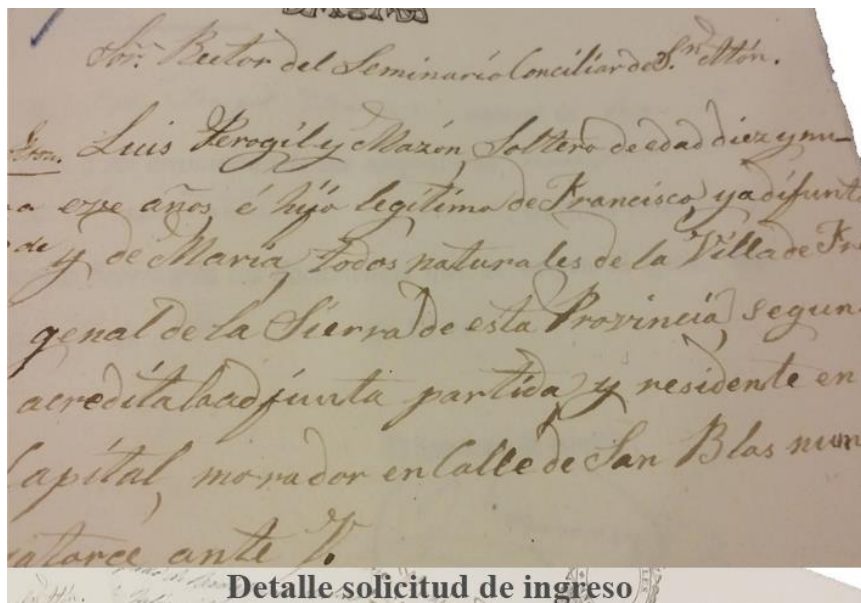 Sor. Rector del Seminario Conciliar de Sn. Atón.
Luis Perogil y Mazón, Soltero de edad diez y nu-
eve años, é hijo legítimo de Francisco, ya difunt
de y de María, todos naturales de la Villa de Fre
genal de la Sierra de esta Provincia, segun
acredita la adjunta partida, y residente en
Capital, morador en Calle de San Blas num
catorce ante V.
Detalle solicitud de ingreso